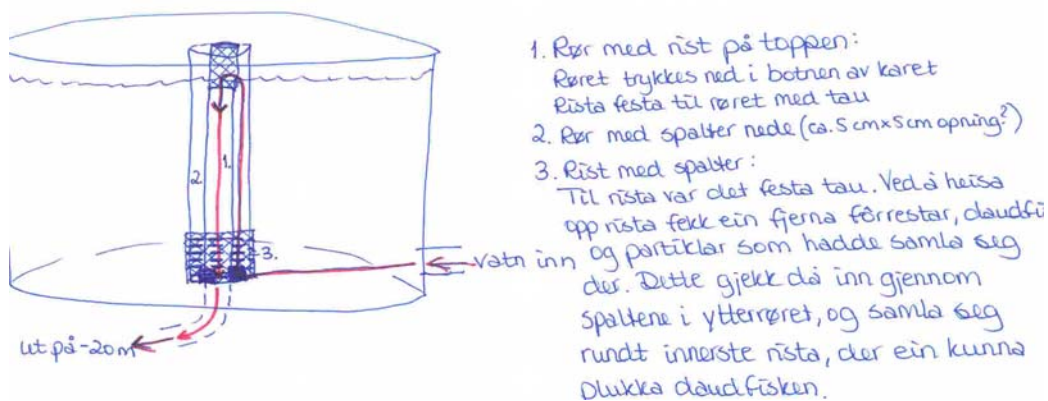 1. Rør med rist på toppen:
Røret trykkes ned i botnen av karet
Rista festa til røret med tau
2. Rør med spalter nede (ca. 5 cm x 5 cm opning?)
3. Rist med spalter:
Til rista var det festa tau. Ved å heisa
opp rista fekk ein fjerna fôrrestar, daudfi
og partiklar som hadde samla seg
der. Dette gjekk då inn gjennom
spaltene i ytterrøret, og samla seg
rundt innerste rista, der ein kunna
plukka daudfisken.
2.
1.
3.
vatn inn
ut på -20m